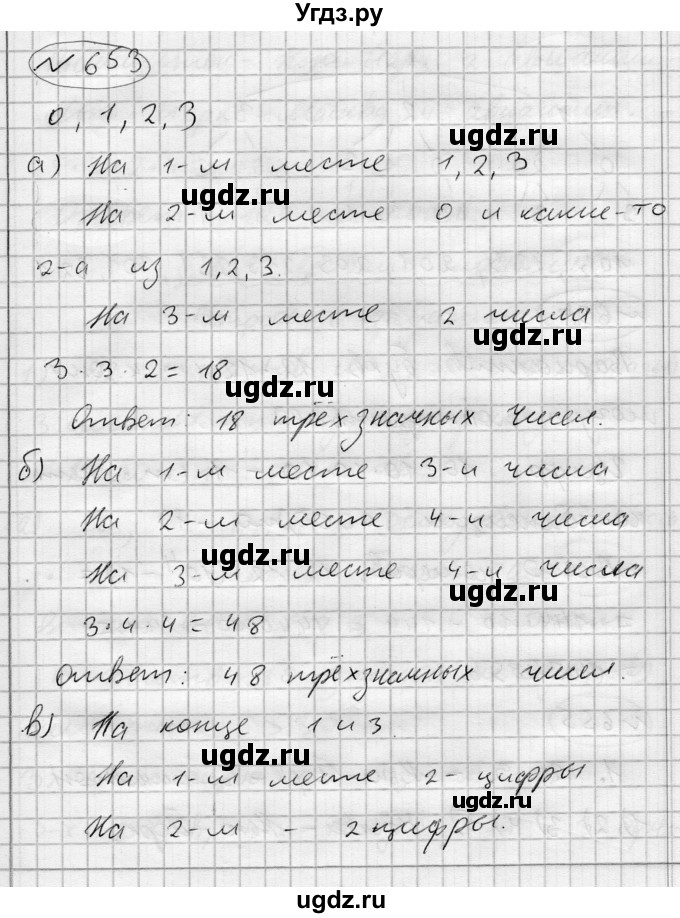 Угдз.ру
N 653
0, 1, 2, 3
а) На 1-м месте 1, 2, 3
ugdz.ru
ugdz.ru
На 2-м месте 0 и какие-то
2-а из 1, 2, 3.
ugdz.ru
На 3-м месте 2 числа
ugdz.ru
3 · 3 · 2 = 18
ugdz.ru
Ответ: 18 трёхзначных чисел.
б) На 1-м месте 3-и числа
ugdz.ru
На 2-м месте 4-и числа
ugdz.ru
На 3-м месте 4-и числа
ugdz.ru
3 · 4 · 4 = 48
Ответ: 48 трёхзначных чисел.
ugdz.ru
в) На конце 1 и 3.
ugdz.ru
На 1-м месте 2- цифры
ugdz.ru
На 2-м - 2 цифры.
ugdz.ru
ugdz.ru